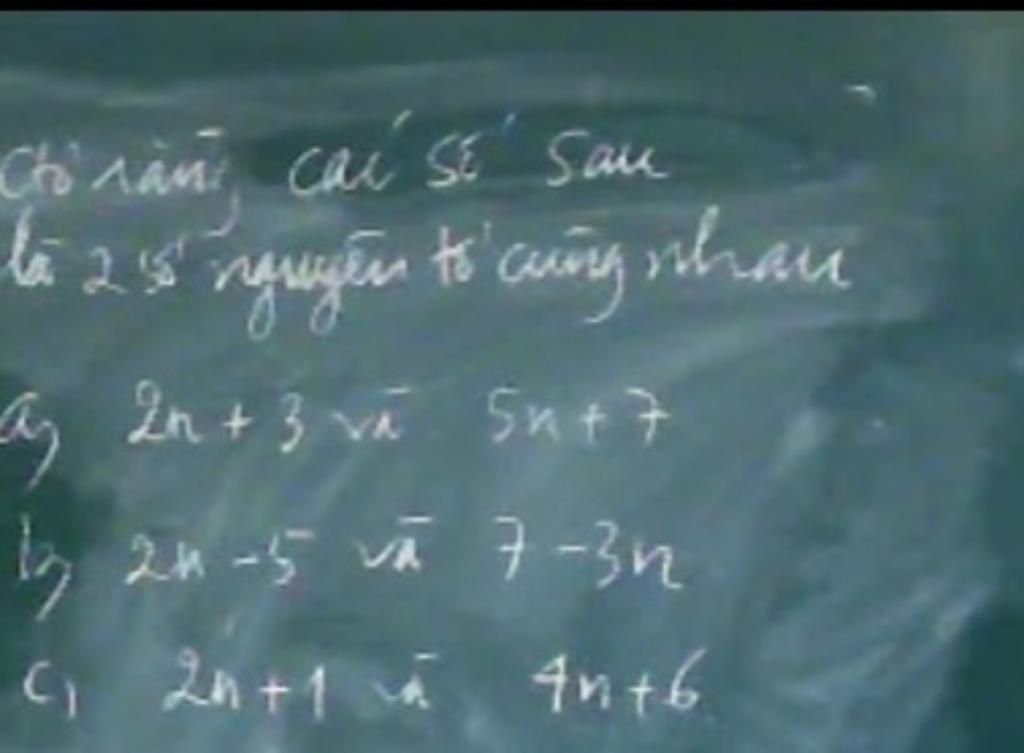 ctỏ rằng các số sau
là 2 số nguyên tố cùng nhau
a, 2n + 3 và 5n + 7
b, 2n - 5 và 7 - 3n
c, 2n + 1 và 4n + 6